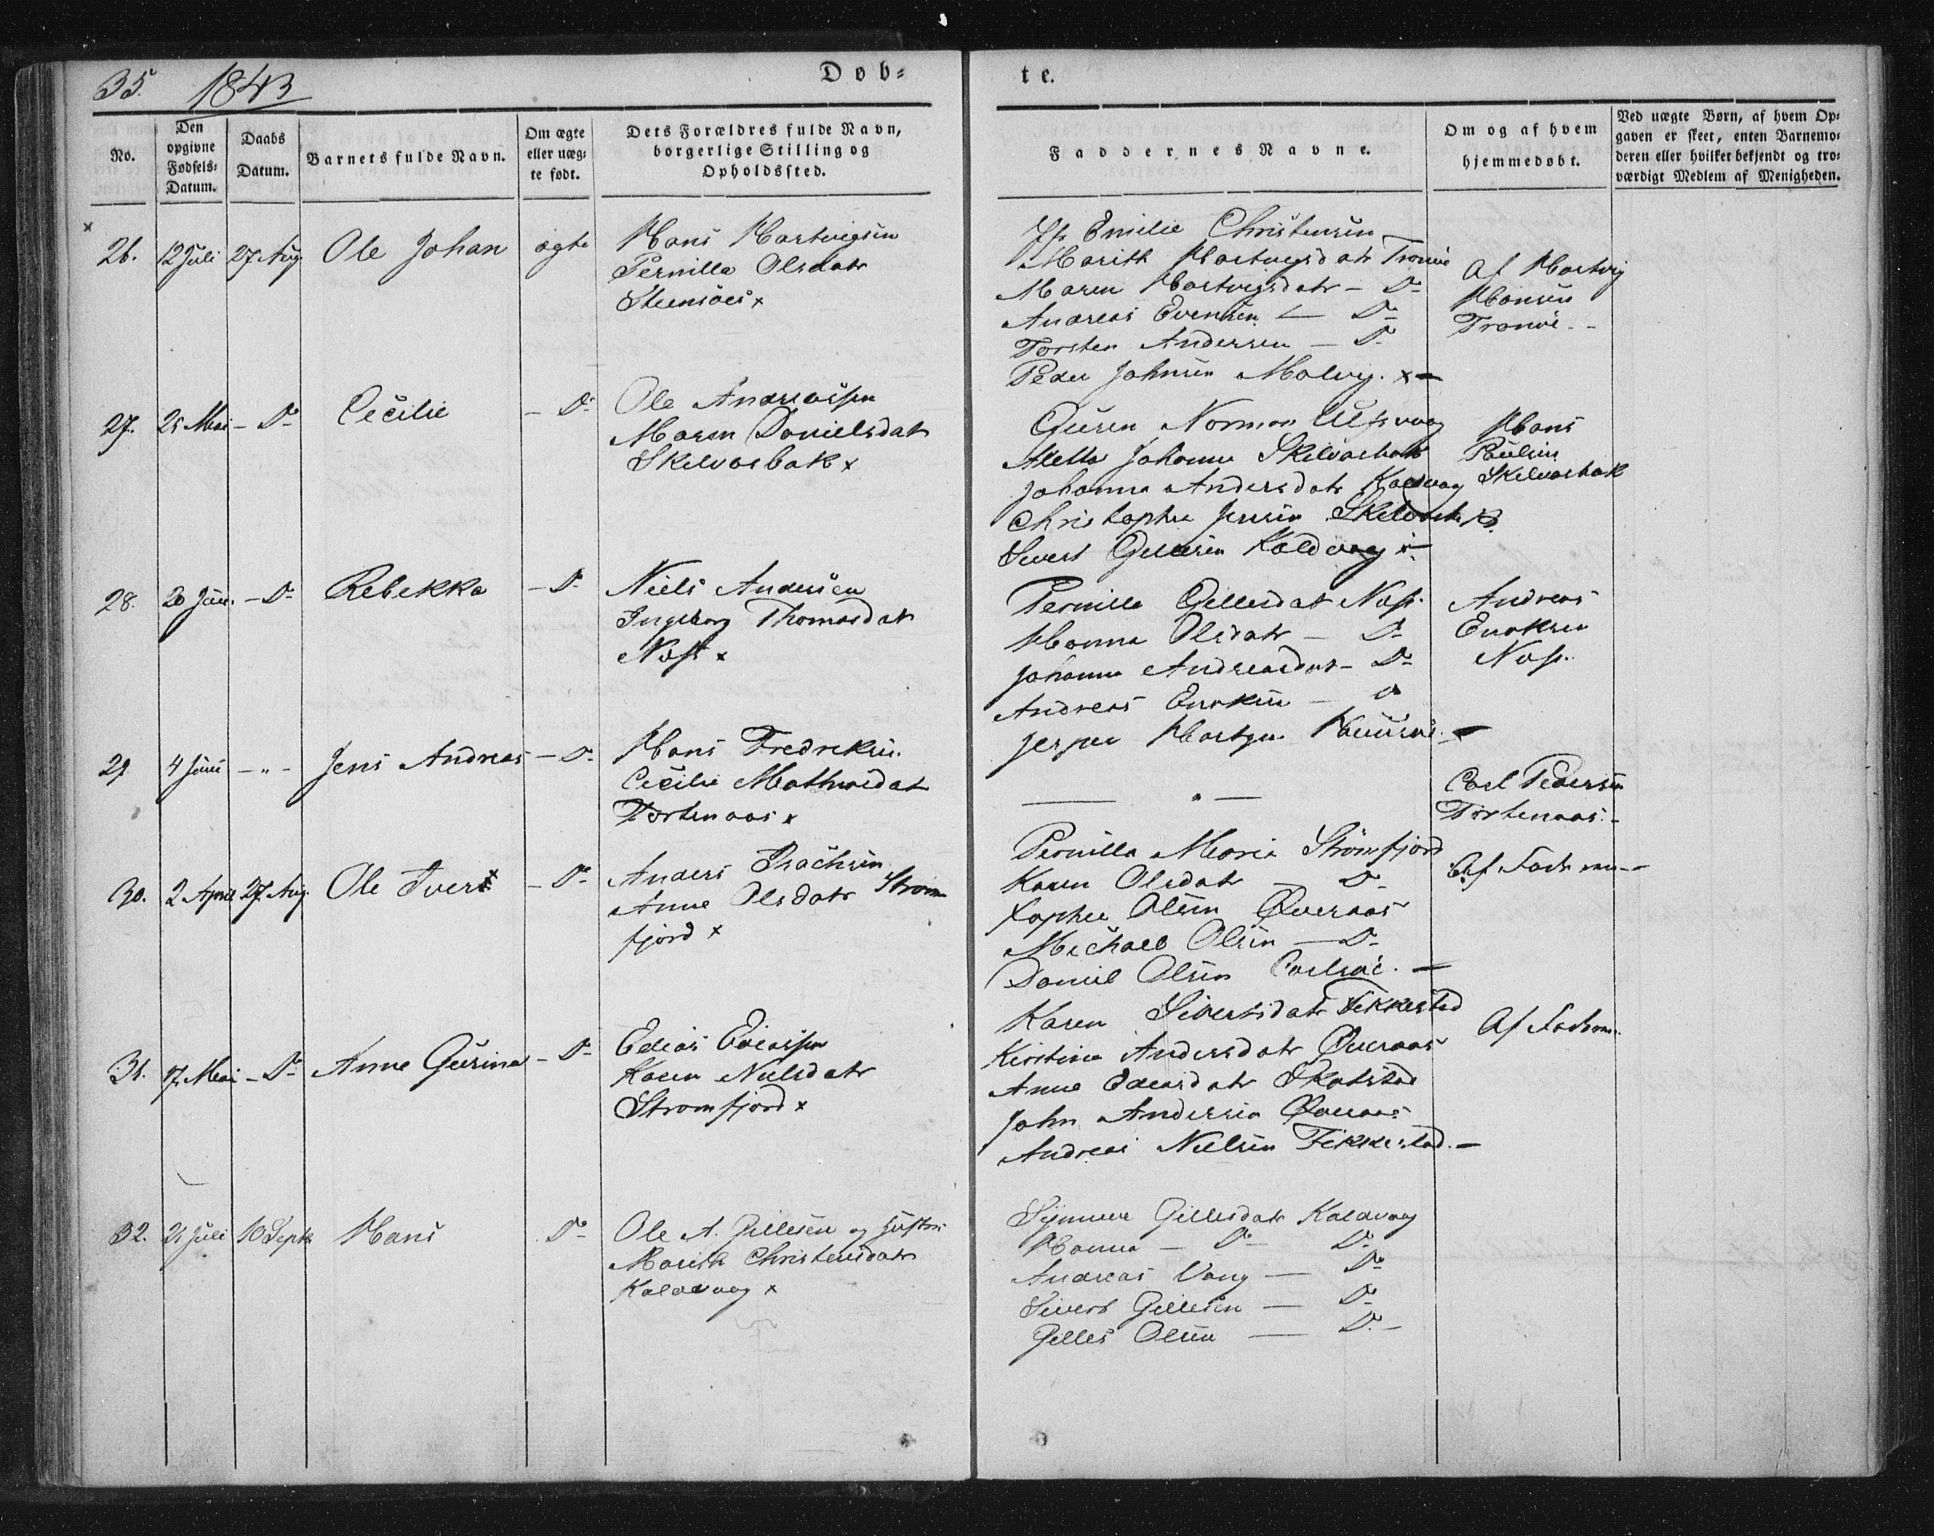 35. 1843
Døb-
te.
No.
Den opgivne Fødsels-Datum.
Daabs Datum.
Barnets fulde Navn.
Om ægte eller uægte født.
Dets Forældres fulde Navn, borgerlige Stilling og Opholdssted.
Faddernes Navne.
Om og af hvem hjemmedøbt.
Ved uægte Børn, af hvem Opgaven er skeet, enten Barnemoderen eller hvilket bekjendt og troværdigt Medlem af Menigheden.
26. 12 Juli 27 Aug. Ole Johan ægte
Hans Hartvigsen
Pernilla Olsdatr
Steensöes x
Jfr Emilie Christensen
Marith Hartvigsdatr Tranöe
Maren Hartvigsdatr - Do
Andreas Evensen - Do
Torsten Andersen - Do
Peder Johnsen Malvig. x -
Af Hartvig
Hansen
Tranöe -
27. 25 Mai - Do Cecilie - Do
Ole Andreassen
Maren Danielsdatr
Skelvasbak x
Guren Norman Ulfsvaag
Aletta Johanna Skelvasbak
Johanna Andersdatr Kaldvaag
Christopher Jensen Skelvasbak
Sivert Gillesen Kaldvaag -
Hans
Paulsen
Skelvasbak
28. 20 Juni. - Do Rebekka - Do
Niels Andersen
Ingeborg Thomasdatr
Næss x
Pernilla Gillesdat Næss.
Hanna Olsdatr - Do
Johanna Andreasdat - Do
Andreas Enoksen - Do
Jesper Hartvigsen
Andreas
Enoksen
Næss.
29. 4 Juni - " - Jens Andreas - Do
Hans Fredriksen
Cecilie Mathiasdat
Tortenaas x
- " -
Carl Pedersen
Tortenaas. -
30. 2 April 27 Aug. Ole Sivert - Do
Anders Isachsen
Anne Olsdatr Strøm
fjord x
Pernilla Maria Strömfjord
Karen Olsdatr - Do
Topher Olsen Øveraas
Michael Olsen - Do
Daniel Olsen Carlsöe. -
Af Fadren -
31. 17 Mai - Do Anne Gurina - Do
Edias Ediassen
Karen Nielsdatr
Strømfjord x
Karen Sivertsdatr Fikkestad
Kirstina Andersdatr Øveraas
Anne Ediasdatr Skotstad
John Andersen Øveraas
Andreas Nielsen Fikkestad. -
Af Fadren.
32. 21 Juli 10 Septr Hans Do
Ole A. Gillesen og Hustru
Marith Christensdatr
Kaldvaag x
Synneve Gillesdatr Kaldvaag
Hanna - Do - Do
Andreas Vang - Do
Sivert Gillesen - Do
Gilles Olsen - Do -